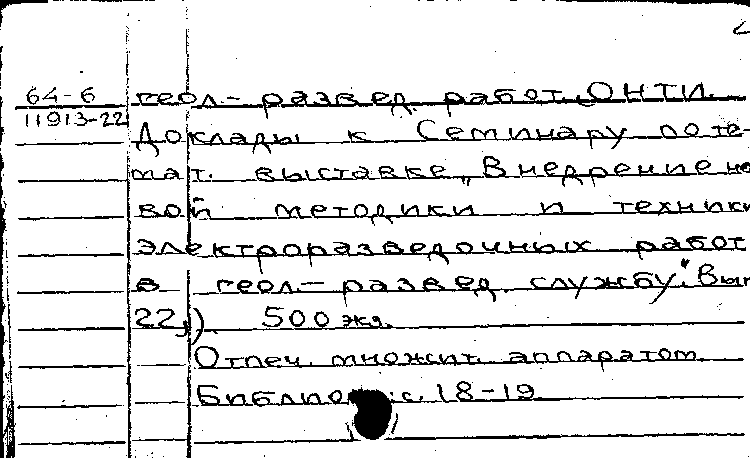 64-6
11913-22
геол.-развед. работ. ОНТИ.
Доклады к Семинару по те-
мат. выставке „Внедрение но
вой методики и техники
электроразведочных работ
в геол.-развед. службу". Вып
22,). 500 экз.
Отпеч. множит. аппаратом.
Библиог: с. 18-19